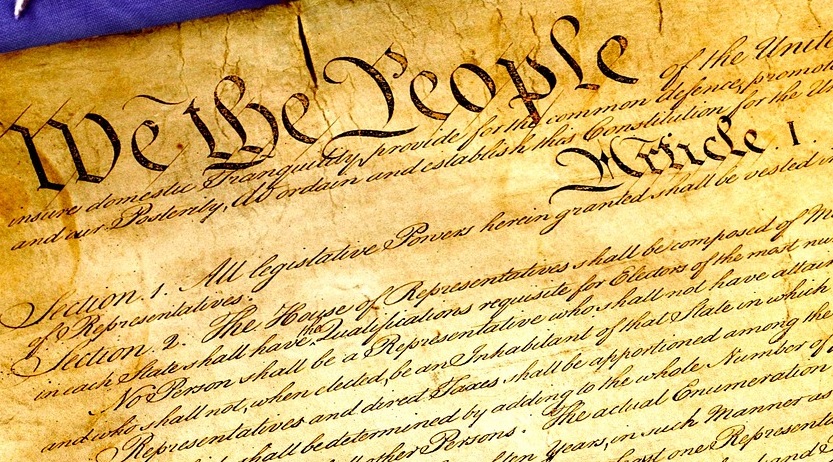 We the People of the Unite
insure domestic Tranquility, provide for the common defence, promot
and our Posterity, do ordain and establish this Constitution for the Un
Article. I.
Section. 1. All legislative Powers herein granted shall be vested in
of Representatives.
Section. 2. The House of Representatives shall be composed of M
in each State shall have the Qualifications requisite for Electors of the most nu
No Person shall be a Representative who shall not have attain
and who shall not, when elected, be an Inhabitant of that State in which
Representatives and direct Taxes shall be apportioned among the
shall be determined by adding to the whole Number of
all other Persons. The actual Enumeration
of ten Years, in such Manner as
least one Representa